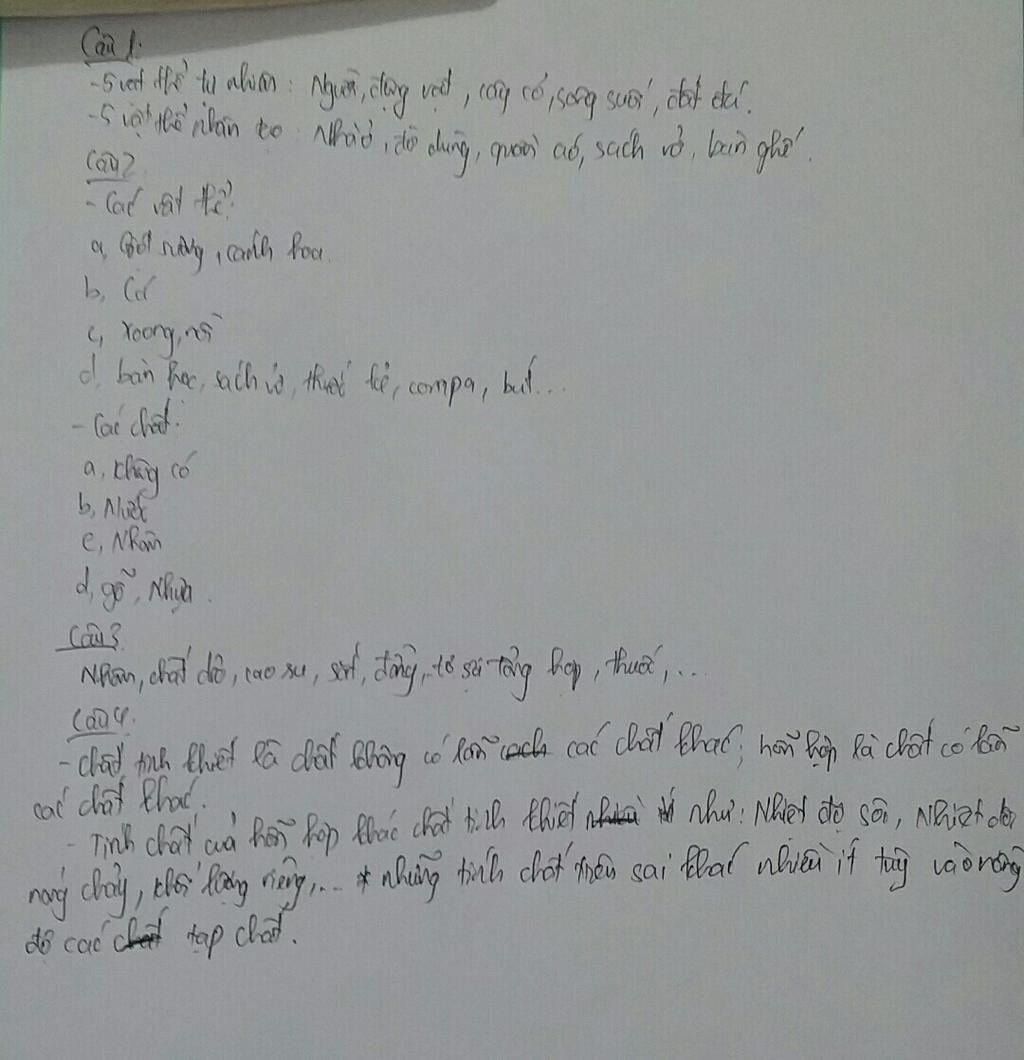 Câu 1.
- 5 vật thể tự nhiên: Người, động vật, cây cỏ, sông suối, đất đá.
- 5 vật thể nhân tạo: Nhà ở, đồ dùng, quần áo, sách vở, bàn ghế.
Câu 2
- Các vật thể:
a, nàng, cánh hoa.
b, Cá
c, xoong, nồi
d, bàn học, sách vở, thước kẻ, compa, bút...
- Các chất:
a, không có
b, Nước
c, Nhôm
d, gỗ, Nhựa.
Câu 3
Nhôm, chất dẻo, cao su, sắt, đồng, tơ sợi tổng hợp, thuốc,...
Câu 4.
- chất tinh khiết là chất không có lẫn các chất khác; hỗn hợp là chất có lẫn
các chất khác.
- Tính chất của hỗn hợp khác chất tinh khiết như: Nhiệt độ sôi, Nhiệt độ
nóng chảy, khối lượng riêng,... * những tính chất trên sai khác nhiều ít tùy vào nồng
độ các tạp chất.